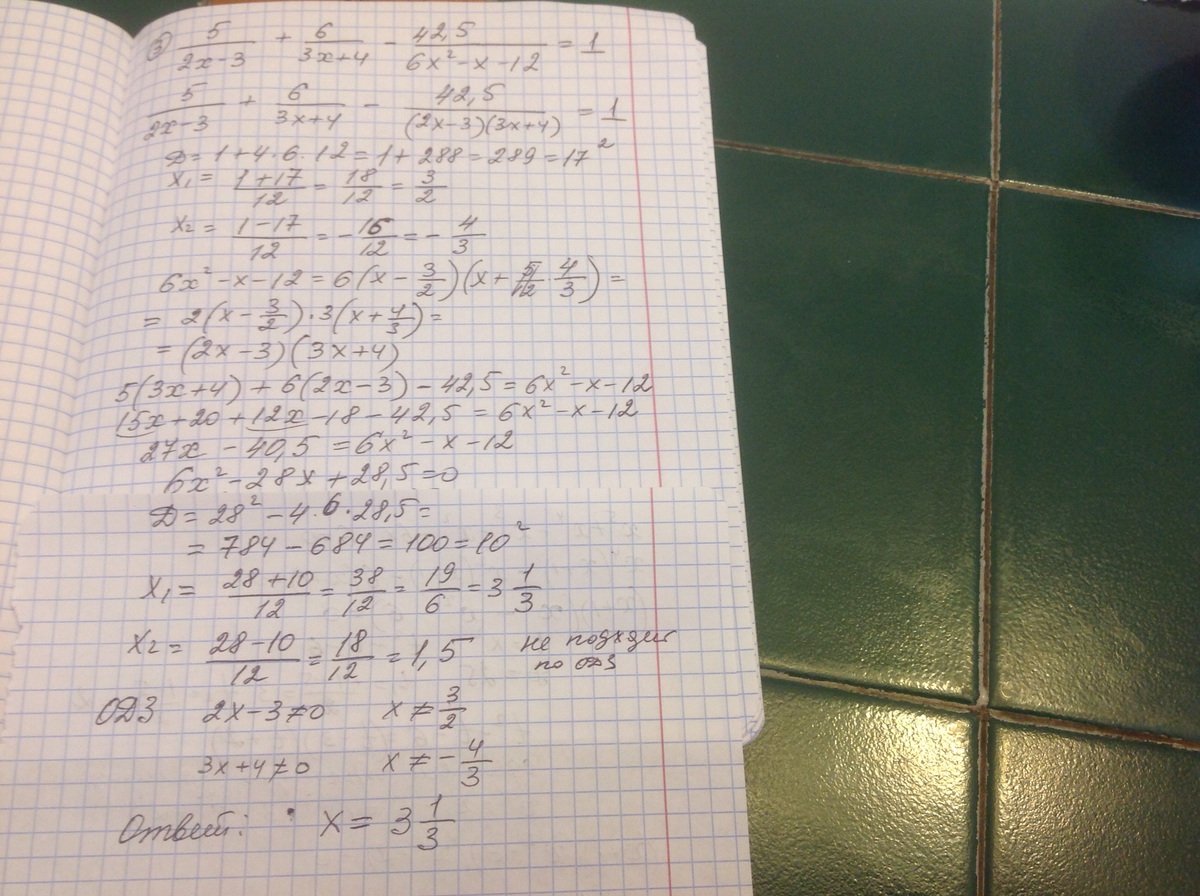 3) 5/(2x-3) + 6/(3x+4) - 42,5/(6x²-x-12) = 1
5/(2x-3) + 6/(3x+4) - 42,5/((2x-3)(3x+4)) = 1
Д = 1+4·6·12 = 1+288 = 289 = 17²
x₁ = (1+17)/12 = 18/12 = 3/2
x₂ = (1-17)/12 = -16/12 = -4/3
6x²-x-12 = 6(x-3/2)(x+4/3) =
= 2(x-3/2)·3(x+4/3) =
= (2x-3)(3x+4)
5(3x+4)+6(2x-3)-42,5 = 6x²-x-12
15x+20+12x-18-42,5 = 6x²-x-12
27x-40,5 = 6x²-x-12
6x²-28x+28,5=0
Д = 28²-4·6·28,5 =
= 784-684 = 100 = 10²
x₁ = (28+10)/12 = 38/12 = 19/6 = 3 1/3
x₂ = (28-10)/12 = 18/12 = 1,5 не подходит
по ОДЗ
ОДЗ 2x-3≠0 x≠3/2
3x+4≠0 x≠-4/3
Ответ: x = 3 1/3